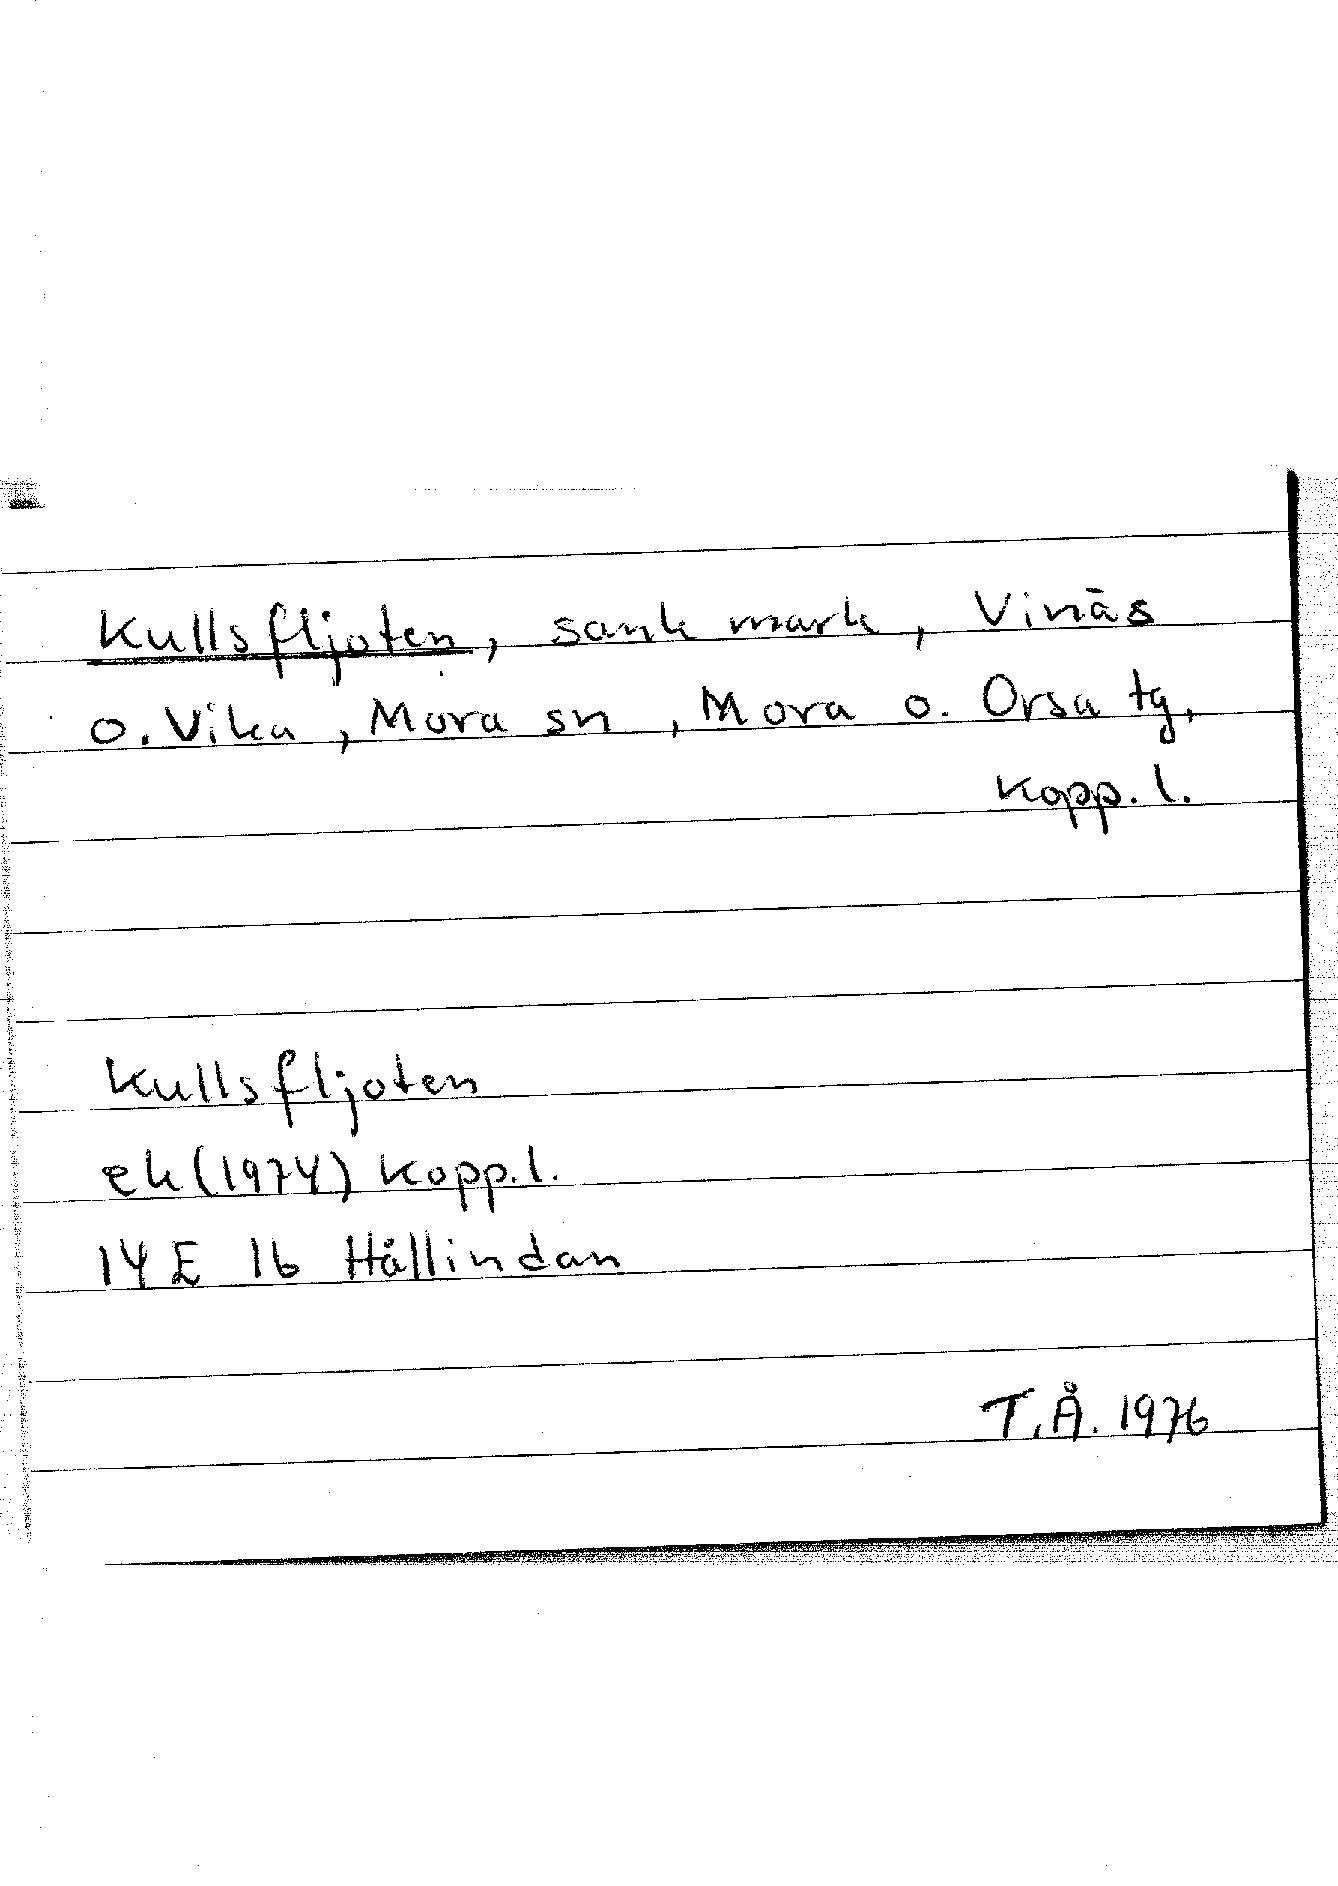 Kullsfljoten, sank mark, Vinäs
o. Vika, Mora sn, Mora o. Orsa tg,
Kopp. l.
Kullsfljoten
ek (1974) Kopp. l.
14 E 1b Hållindan
T.Å. 1976